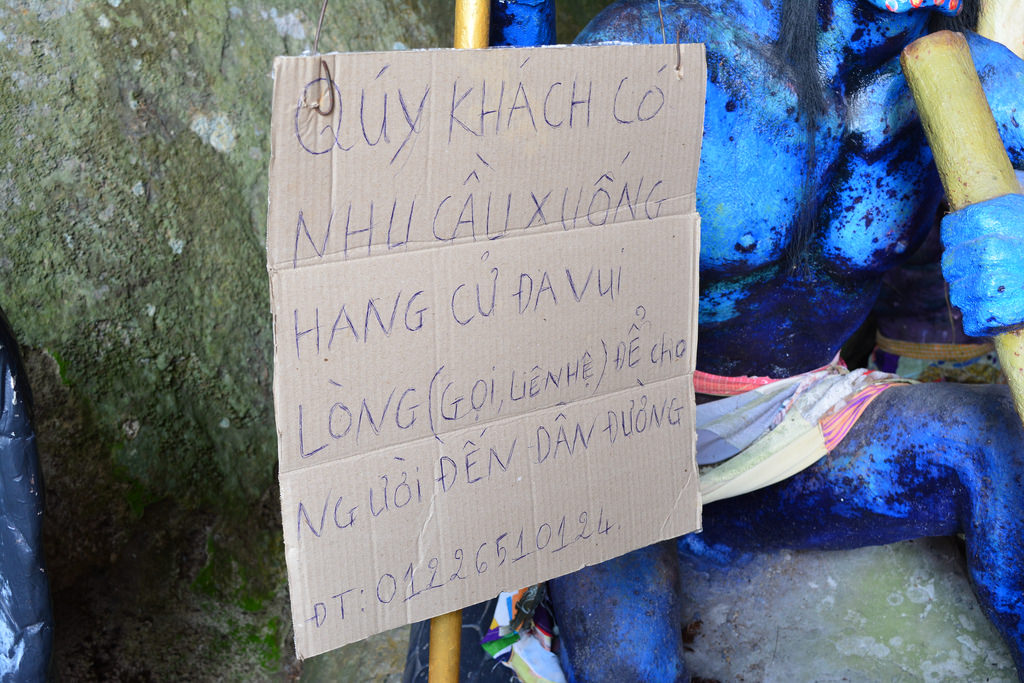 QÚY KHÁCH CÓ
NHU CẦU XUỐNG
HANG CỬ ĐẠ VUI
LÒNG (GỌI, LIÊN HỆ) ĐỂ cho
NGƯỜI ĐẾN DẪN ĐƯỜNG
ĐT: 01226510124.